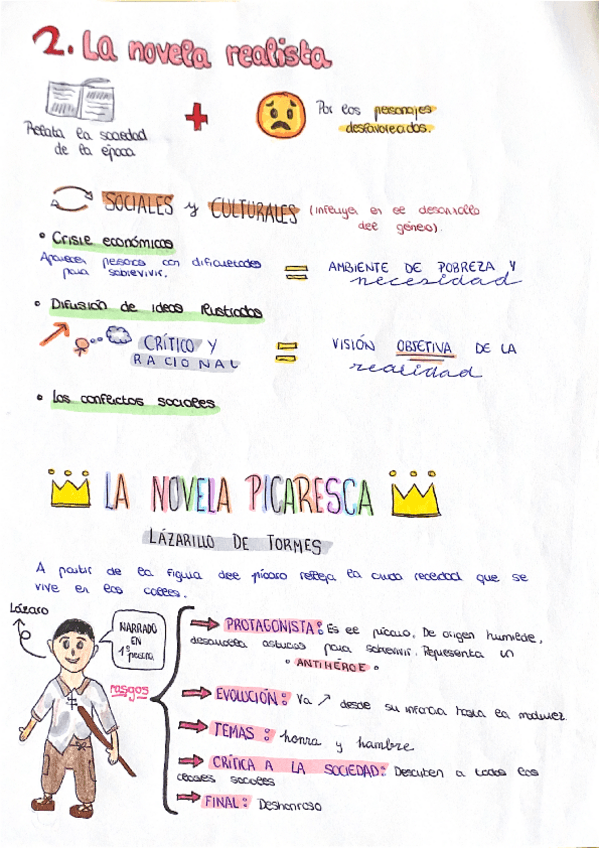 2. La novela realista
Relata la sociedad
de la época
+
Por los personajes
desfavorecidos.
SOCIALES y CULTURALES (influye en el desarrollo
del género).
• Crisis económicas
Aparecen personas con dificultades
para sobrevivir.
=
AMBIENTE DE POBREZA Y
necesidad
• Difusión de ideas ilustradas
CRÍTICO Y
RACIONAL
=
VISIÓN OBJETIVA DE LA
realidad
• Los conflictos sociales
LA NOVELA PICARESCA
LÁZARILLO DE TORMES
A partir de la figura del pícaro refleja la cruda realidad que se
vive en las calles.
Lázaro
NARRADO
EN
1ª persona
rasgos
PROTAGONISTA: Es el pícaro. De origen humilde,
desarrolla astucias para sobrevivir. Representa un
• ANTIHÉROE •
EVOLUCIÓN: Va ↗ desde su infancia hasta la madurez.
TEMAS: honra y hambre
CRÍTICA A LA SOCIEDAD: Describen a todas las
clases sociales
FINAL: Deshonroso